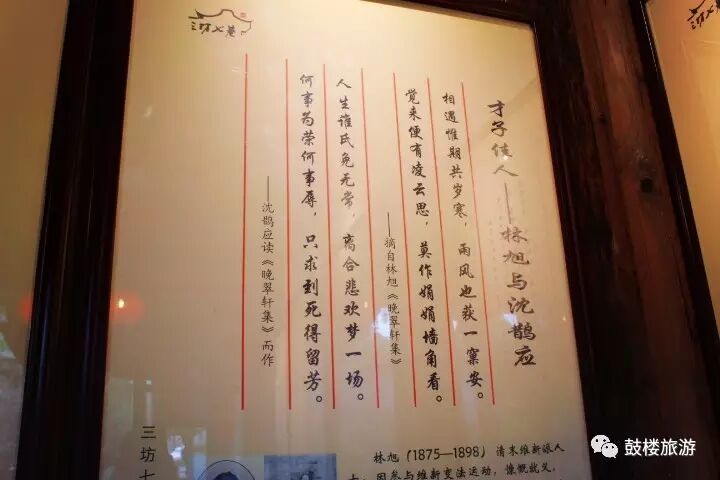 三坊七巷
才子佳人——林旭与沈鹊应
相遇惟期共岁寒，雨风也获一窠安。
觉来便有凌云思，莫作娟娟墙角看。
——摘自林旭《晚翠轩集》
人生谁氏免无常，离合悲欢梦一场。
何事为荣何事辱，只求到死得留芳。
——沈鹊应读《晚翠轩集》而作
三坊七
林旭（1875—1898）清末维新派人
因参与维新变法运动，慷慨就义，
鼓楼旅游